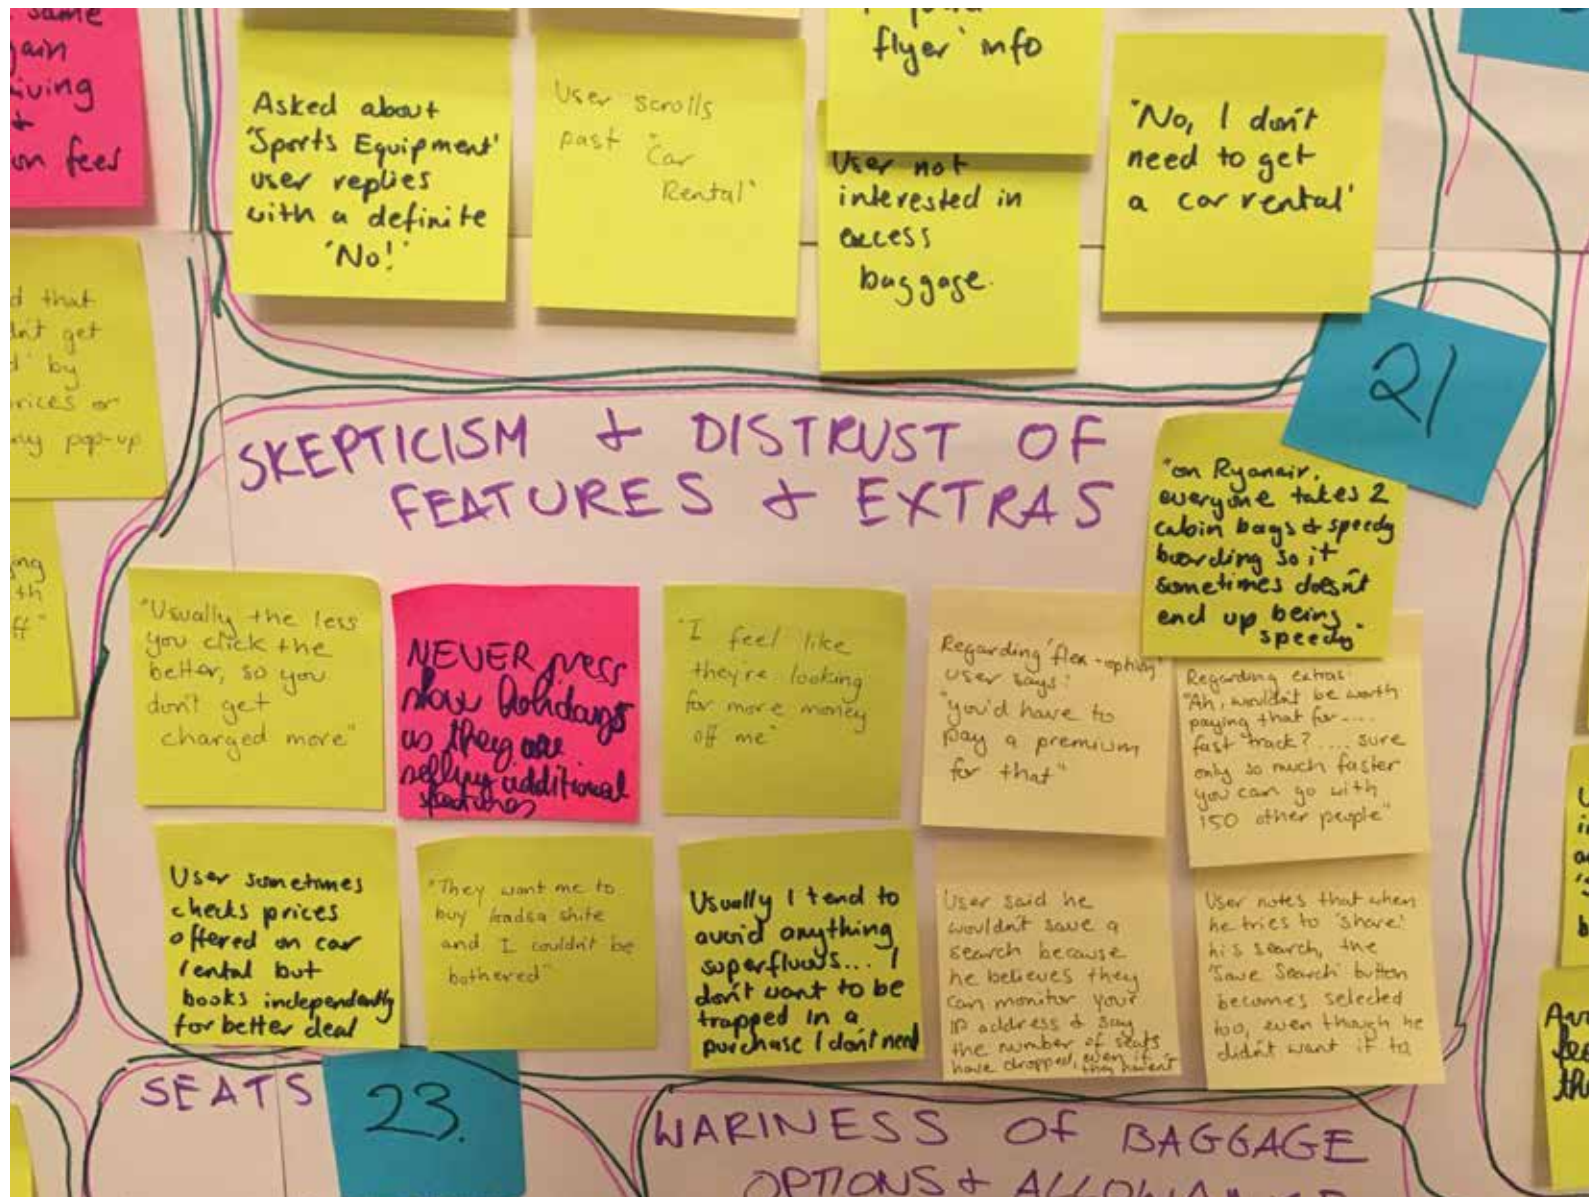 same
gain
iving
+
on fees
Asked about
'Sports Equipment'
user replies
with a definite
'No!'
User scrolls
past "Car
Rental"
flyer' info
User not
interested in
excess
baggage.
"No, I don't
need to get
a car rental'
d that
dn't get
d' by
rices or
ny pop-up
ing
th
ff"
21
SKEPTICISM & DISTRUST OF
FEATURES & EXTRAS
"on Ryanair,
everyone takes 2
cabin bags & speedy
boarding so it
sometimes doesn't
end up being
speedy"
"Usually the less
you click the
better, so you
don't get
charged more"
NEVER press
show holidays
as they are
selling additional
features
"I feel like
they're looking
for more money
off me"
Regarding 'flex-option'
user says:
"you'd have to
pay a premium
for that"
Regarding extras:
"Ah, wouldn't be worth
paying that for....
fast track?.... sure
only so much faster
you can go with
150 other people"
User sometimes
checks prices
offered on car
rental but
books independently
for better deal
"They want me to
buy loadsa shite
and I couldn't be
bothered"
Usually I tend to
avoid anything
superfluous... I
don't want to be
trapped in a
purchase I don't need
User said he
wouldn't save a
search because
he believes they
can monitor your
IP address & say
the number of seats
have dropped, even if
they haven't
User notes that when
he tries to 'share'
his search, the
'Save Search' button
becomes selected
too, even though he
didn't want it to
SEATS
23.
WARINESS OF BAGGAGE
OPTIONS &